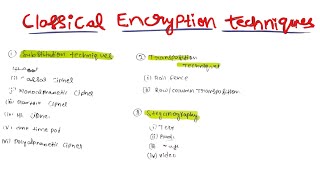 Classical Encryption techniques
① Substitution techniques
(i) Caesar Cipher
(ii) Monoalphabetic Cipher
(iii) Playfair Cipher
(iv) Hill Cipher
(v) one time pad
(vi) Polyalphabetic Cipher
② Transposition
techniques
(i) Rail fence
(ii) Row/column Transposition
③ Steganography
(i) Text
(ii)
(iii)
(iv) video